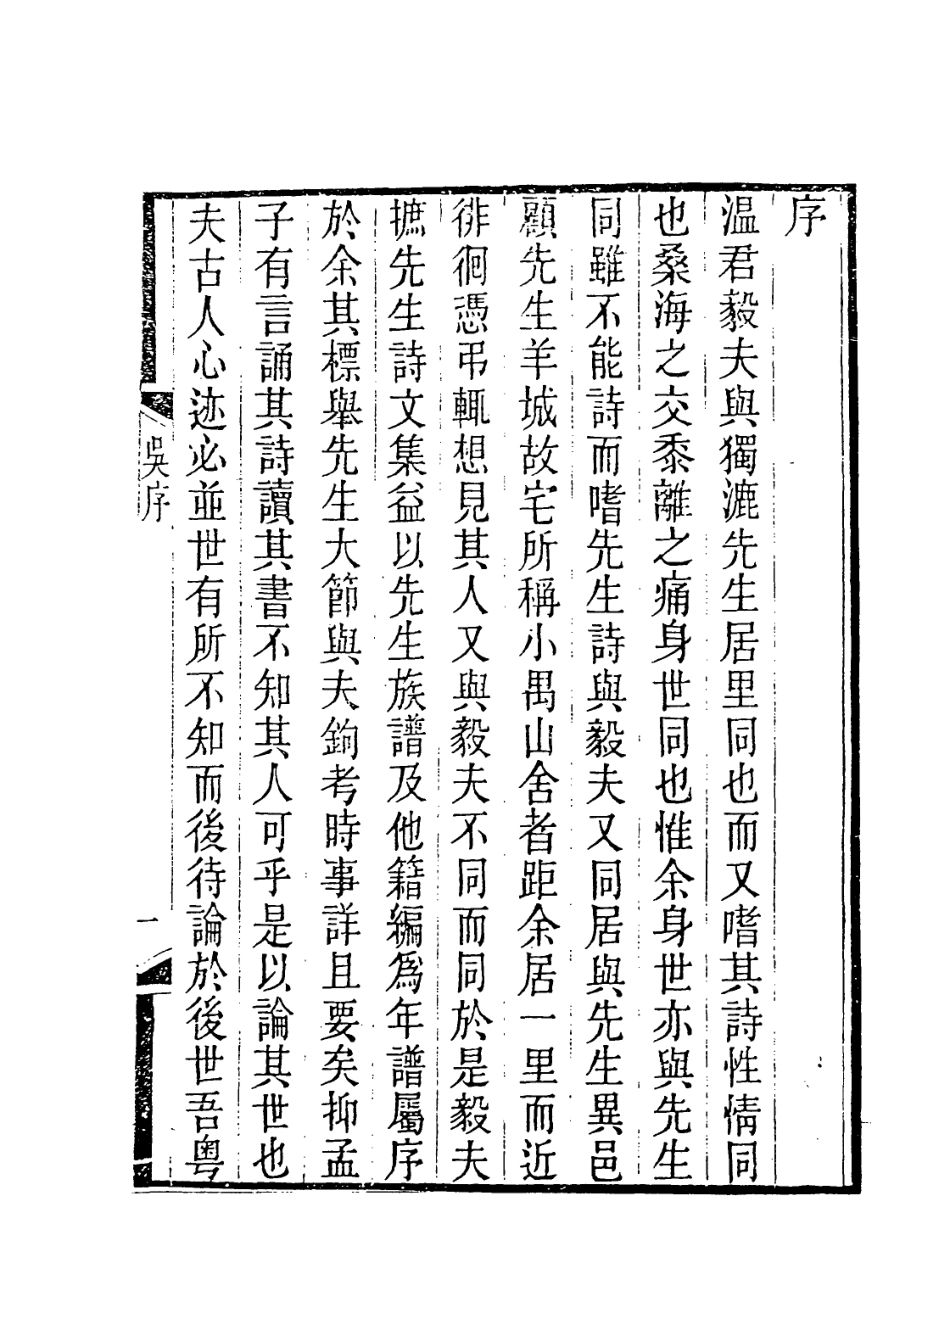 序
温君毅夫與獨漉先生居里同也而又嗜其詩性情同
也桑海之交黍離之痛身世同也惟余身世亦與先生
同雖不能詩而嗜先生詩與毅夫又同居與先生異邑
顧先生羊城故宅所稱小禺山舍者距余居一里而近
徘徊憑弔輒想見其人又與毅夫不同而同於是毅夫
摭先生詩文集益以先生族譜及他籍編爲年譜屬序
於余其標舉先生大節與夫鉤考時事詳且要矣抑孟
子有言誦其詩讀其書不知其人可乎是以論其世也
夫古人心迹必並世有所不知而後待論於後世吾粤
吳序
一